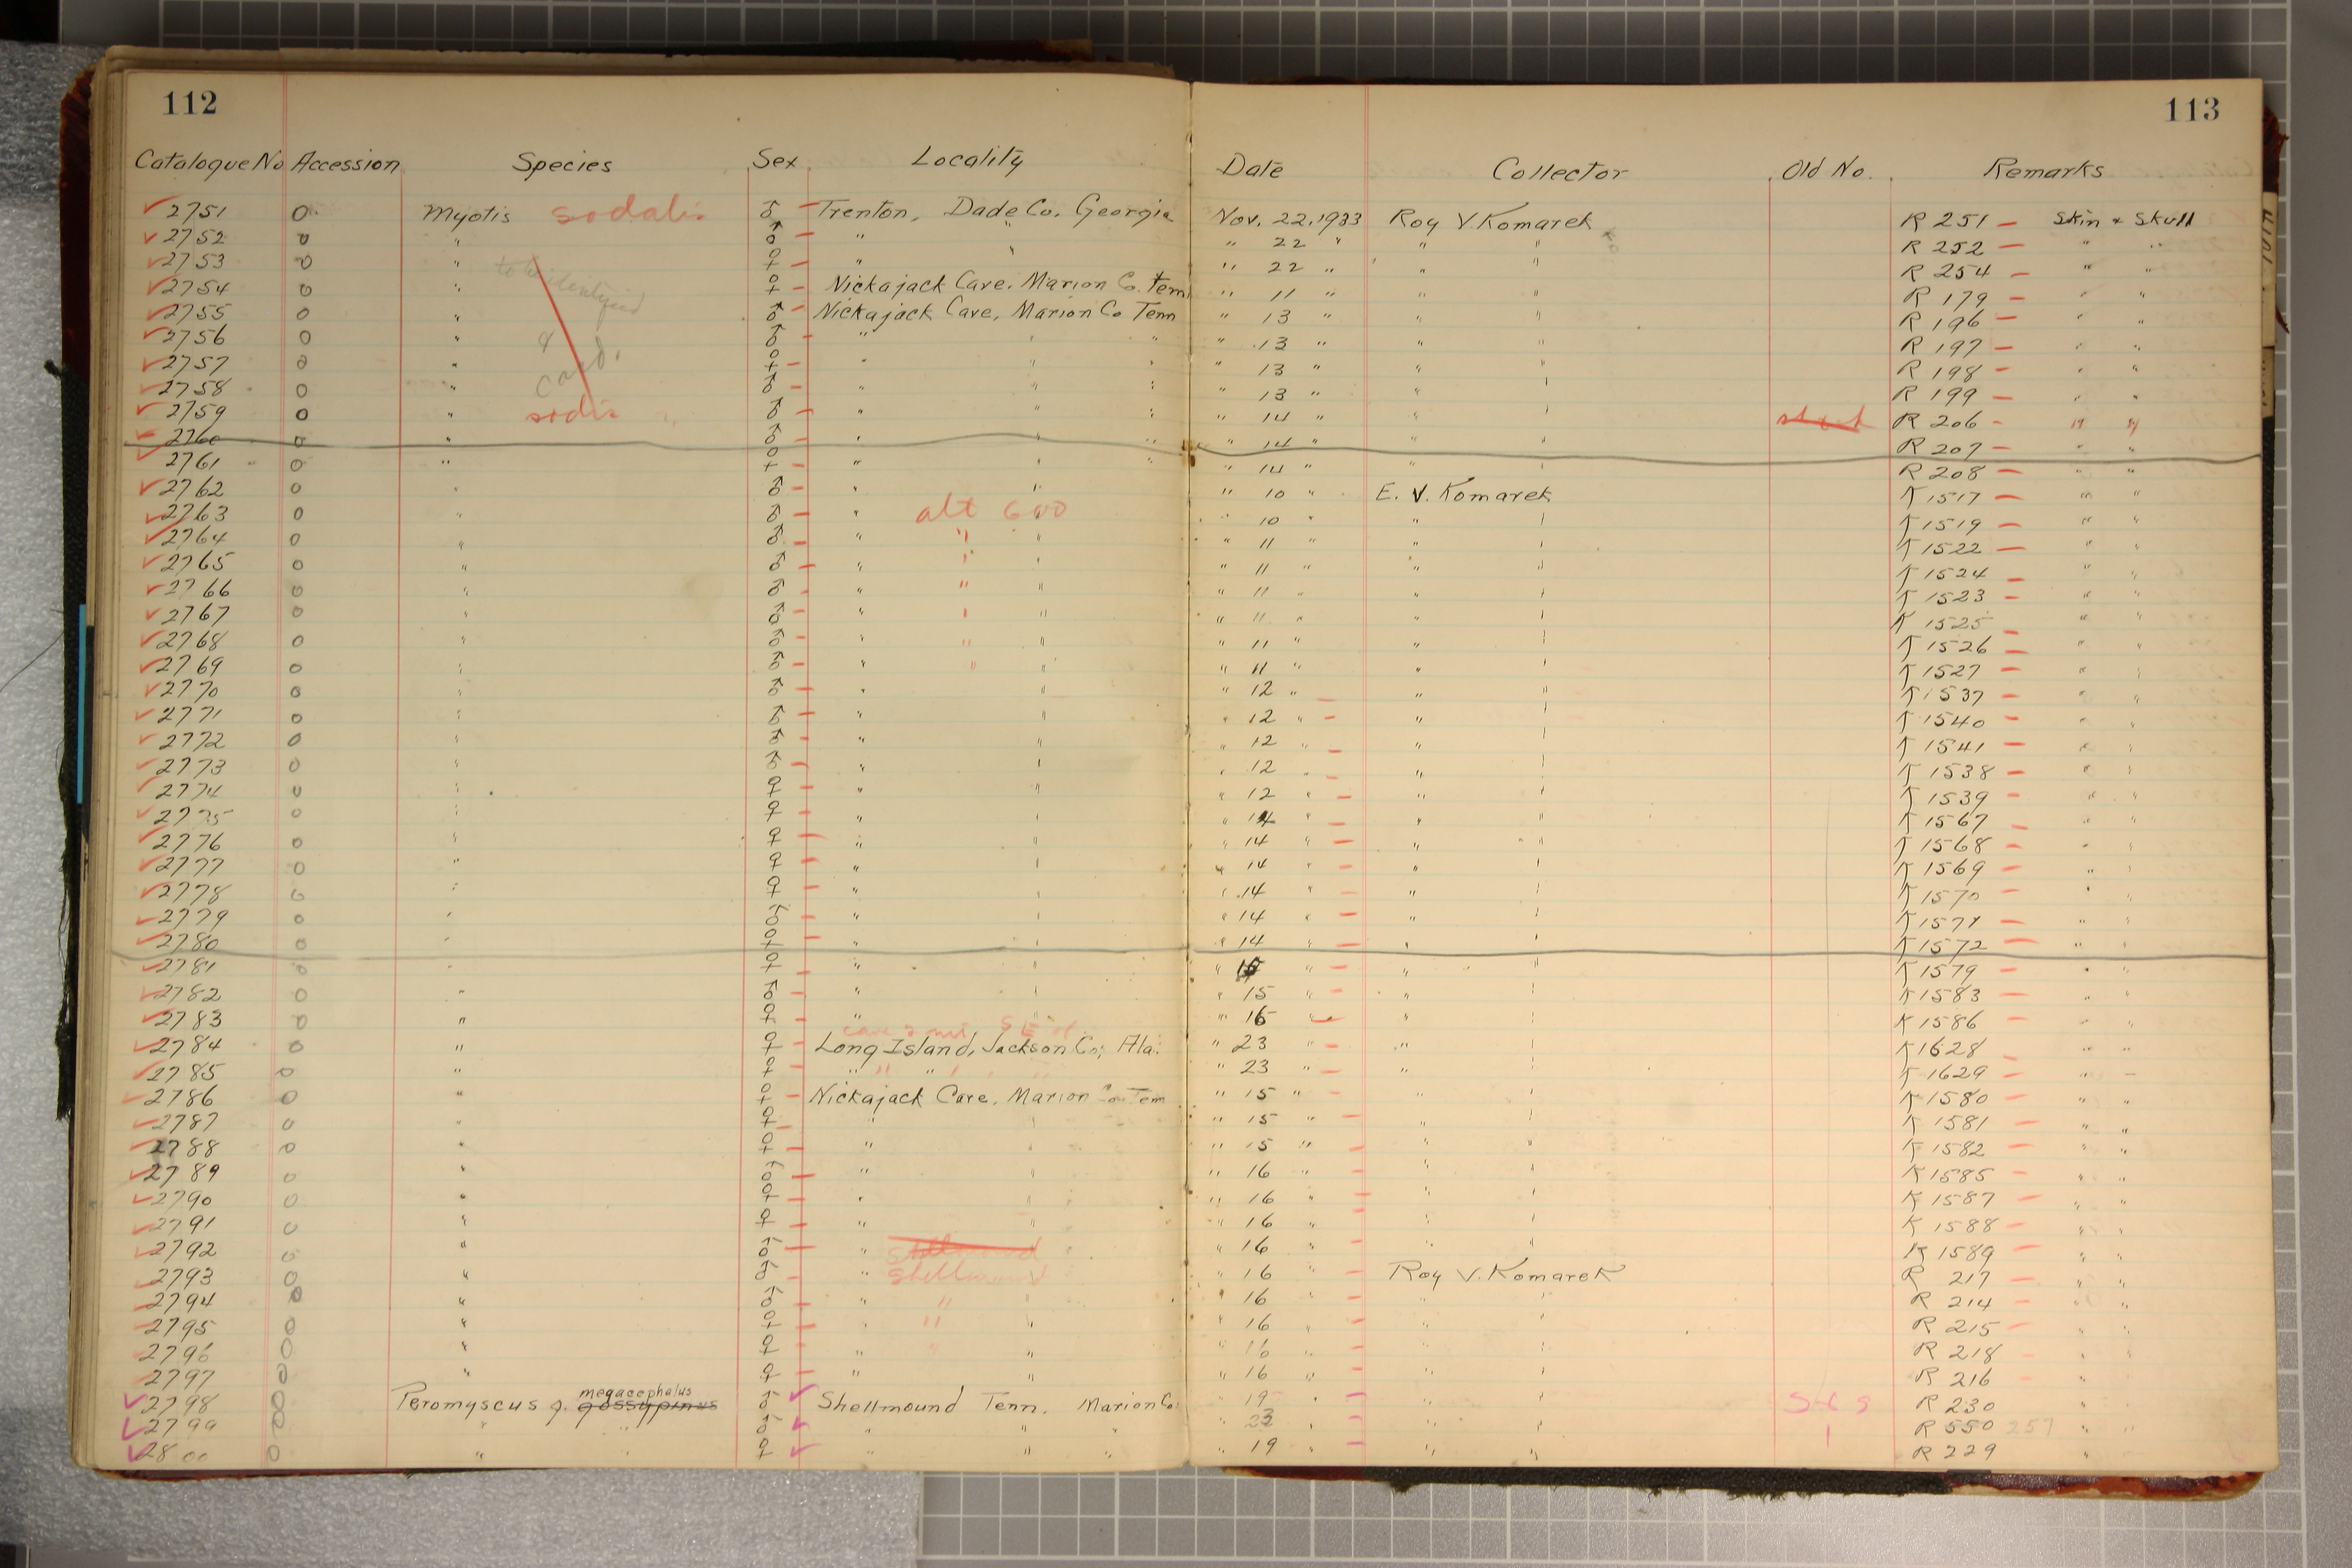 112
113
Catalogue No Accession Species Sex Locality Date Collector Old No. Remarks
2751 0 Myotis sodalis ♂ Trenton, Dade Co. Georgia Nov. 22, 1933 Roy V. Komarek R 251 Skin & Skull
2752 0 " ♂ " " " 22 " " " R 252 " "
2753 0 " ♀ " " " 22 " " " R 254 " "
2754 0 " ♀ Nickajack Cave, Marion Co. Tenn " 11 " " " R 179 " "
2755 0 " ♂ Nickajack Cave, Marion Co Tenn " 13 " " " R 196 " "
2756 0 " ♂ " " " " 13 " " " R 197 " "
2757 0 " ♀ " " " " 13 " " " R 198 " "
2758 0 " ♂ " " " " 13 " " " R 199 " "
2759 0 " ♂ " " " " 14 " " " R 206 " "
2760 0 " ♂ " " " " 14 " " " R 207 " "
2761 0 " ♀ " " " " 14 " " " R 208 " "
2762 0 " ♂ " " " 10 " E. V. Komarek K 1517 " "
2763 0 " ♂ " alt 600 " 10 " " " K 1519 " "
2764 0 " ♂ " " " " 11 " " " K 1522 " "
2765 0 " ♂ " " " " 11 " " " K 1524 " "
2766 0 " ♂ " " " " 11 " " " K 1523 " "
2767 0 " ♂ " " " " 11 " " " K 1525 " "
2768 0 " ♂ " " " " 11 " " " K 1526 " "
2769 0 " ♂ " " " " 11 " " " K 1527 " "
2770 0 " ♂ " " " 12 " " " K 1537 " "
2771 0 " ♂ " " " 12 " " " K 1540 " "
2772 0 " ♂ " " " 12 " " " K 1541 " "
2773 0 " ♂ " " " 12 " " " K 1538 " "
2774 0 " ♀ " " " 12 " " " K 1539 " "
2775 0 " ♀ " " " 14 " " " K 1567 " "
2776 0 " ♀ " " " 14 " " " K 1568 " "
2777 0 " ♀ " " " 14 " " " K 1569 " "
2778 0 " ♀ " " " 14 " " " K 1570 " "
2779 0 " ♂ " " " 14 " " " K 1571 " "
2780 0 " ♀ " " " 14 " " " K 1572 " "
2781 0 " ♀ " " " " " " K 1579 " "
2782 0 " ♂ " " " 15 " " " K 1583 " "
2783 0 " ♀ " " " 16 " " " K 1586 " "
cave 2 mi SE of
2784 0 " ♀ Long Island, Jackson Co; Ala. " 23 " " " K 1628 " "
2785 0 " ♀ " " " " 23 " " " K 1629 " "
2786 0 " ♀ Nickajack Cave, Marion Co. Tenn " 15 " " " K 1580 " "
2787 0 " ♀ " " " 15 " " " K 1581 " "
2788 0 " ♀ " " " 15 " " " K 1582 " "
2789 0 " ♂ " " " 16 " " " K 1585 " "
2790 0 " ♀ " " " 16 " " " K 1587 " "
2791 0 " ♀ " " " 16 " " " K 1588 " "
2792 0 " ♂ " Shellmound " 16 " " " K 1589 " "
2793 0 " ♂ " Shellmound " 16 " Roy V. Komarek R 217 " "
2794 0 " ♂ " " " " 16 " " " R 214 " "
2795 0 " ♀ " " " " 16 " " " R 215 " "
2796 0 " ♀ " " " " 16 " " " R 218 " "
2797 0 " ♀ " " " 16 " " " R 216 "
2798 0 Peromyscus g. gossypinus megacephalus ♂ Shellmound Tenn. Marion Co. " 19 " " " S & S R 230 "
2799 0 " " ♂ " " " " 23 " " " R 550 257 " "
2800 0 " " ♀ " " " " 19 " " " R 229 "